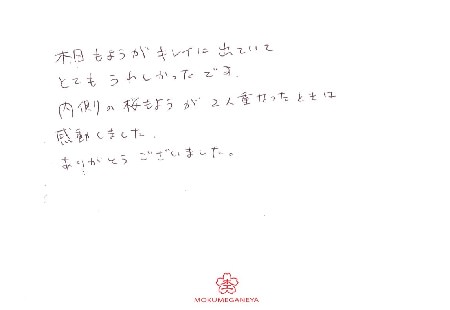 木目もようがキレイに出ていて
とてもうれしかったです。
内側の桜もようが2人重なったときは
感動しました。
ありがとうございました。
MOKUMEGANEYA